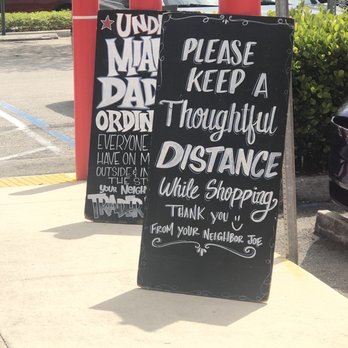 UND
MIA
DAD
ORDIN
EVERYONE
HAVE ON M
OUTSIDE & IN
THE ST
YOUR NEIGH
TRADER
PLEASE
KEEP A
Thoughtful
DISTANCE
While Shopping
THANK YOU
FROM YOUR NEIGHBOR JOE